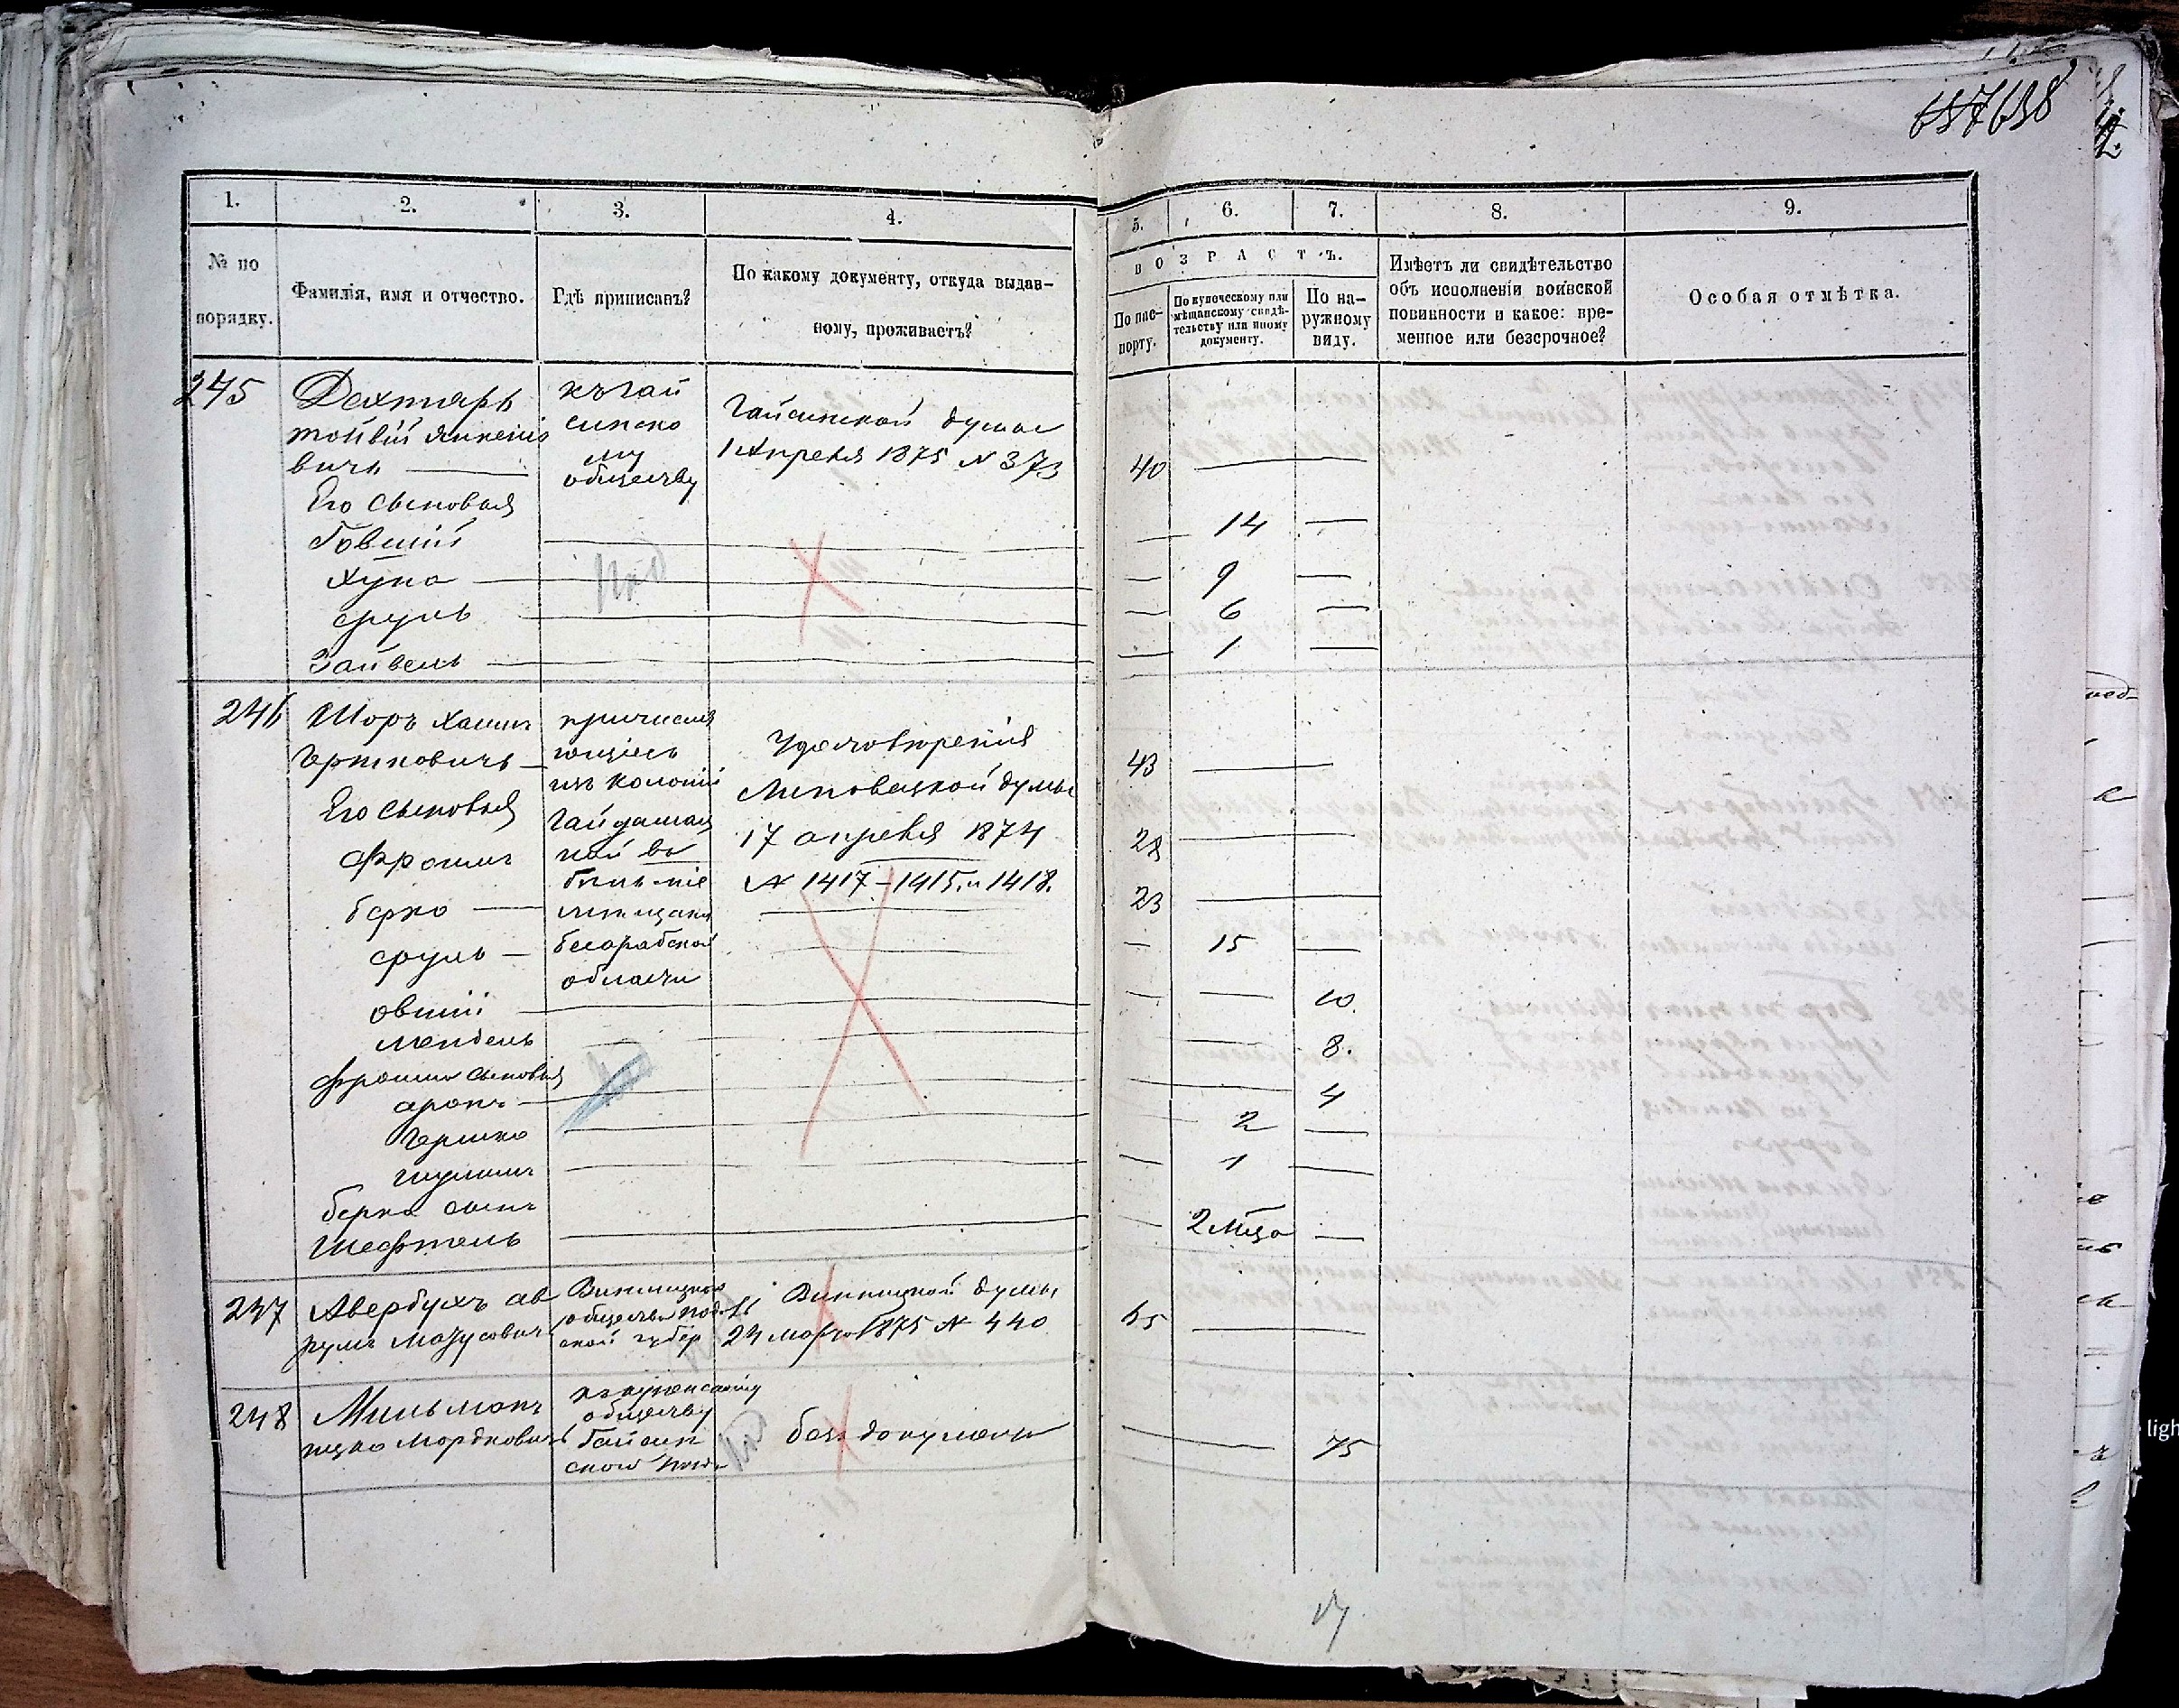 638
1.
2.
3.
4.
5.
6.
7.
8.
9.
№ по
порядку.
Фамилія, имя и отчество.
Гдѣ приписанъ?
По какому документу, откуда выдан-
ному, проживаетъ?
ВОЗРАСТЪ.
По пас-
порту.
По купеческому или
мѣщанскому свидѣ-
тельству или иному
документу.
По на-
ружному
виду.
Имѣетъ ли свидѣтельство
объ исполненіи воинской
повинности и какое: вре-
менное или безсрочное?
Особая отмѣтка.
245
Дехтярь
вичъ
Его сыновья
Хуна
сруль
Зайвель
къ гай
синско
му
обществу
Гайсинской думы
1 Апреля 1875 № 373
40
14
9
6
1
246
Шоръ Хаимъ
Гершковичъ
Его сыновья
Фроимъ
берко
сруль
овшій
мендель
Фроима сыновья
аронъ
Гершко
шулимъ
берка сынъ
Шефтель
причисля
ющіесь
изъ колоніи
мещане
бесарабской
области
Удостоверенія
Липовецкой думы
17 апреля 1874
№ 1417-1415. и 1418.
43
28
23
15
10.
8.
4
2
1
2 мца
247
Авербухъ ав
румъ
Винницкой думы
24 марта 1875 № 440
65
248
Мильманъ
ицко Мордковичъ
обществу
Гайсин
без документа
75